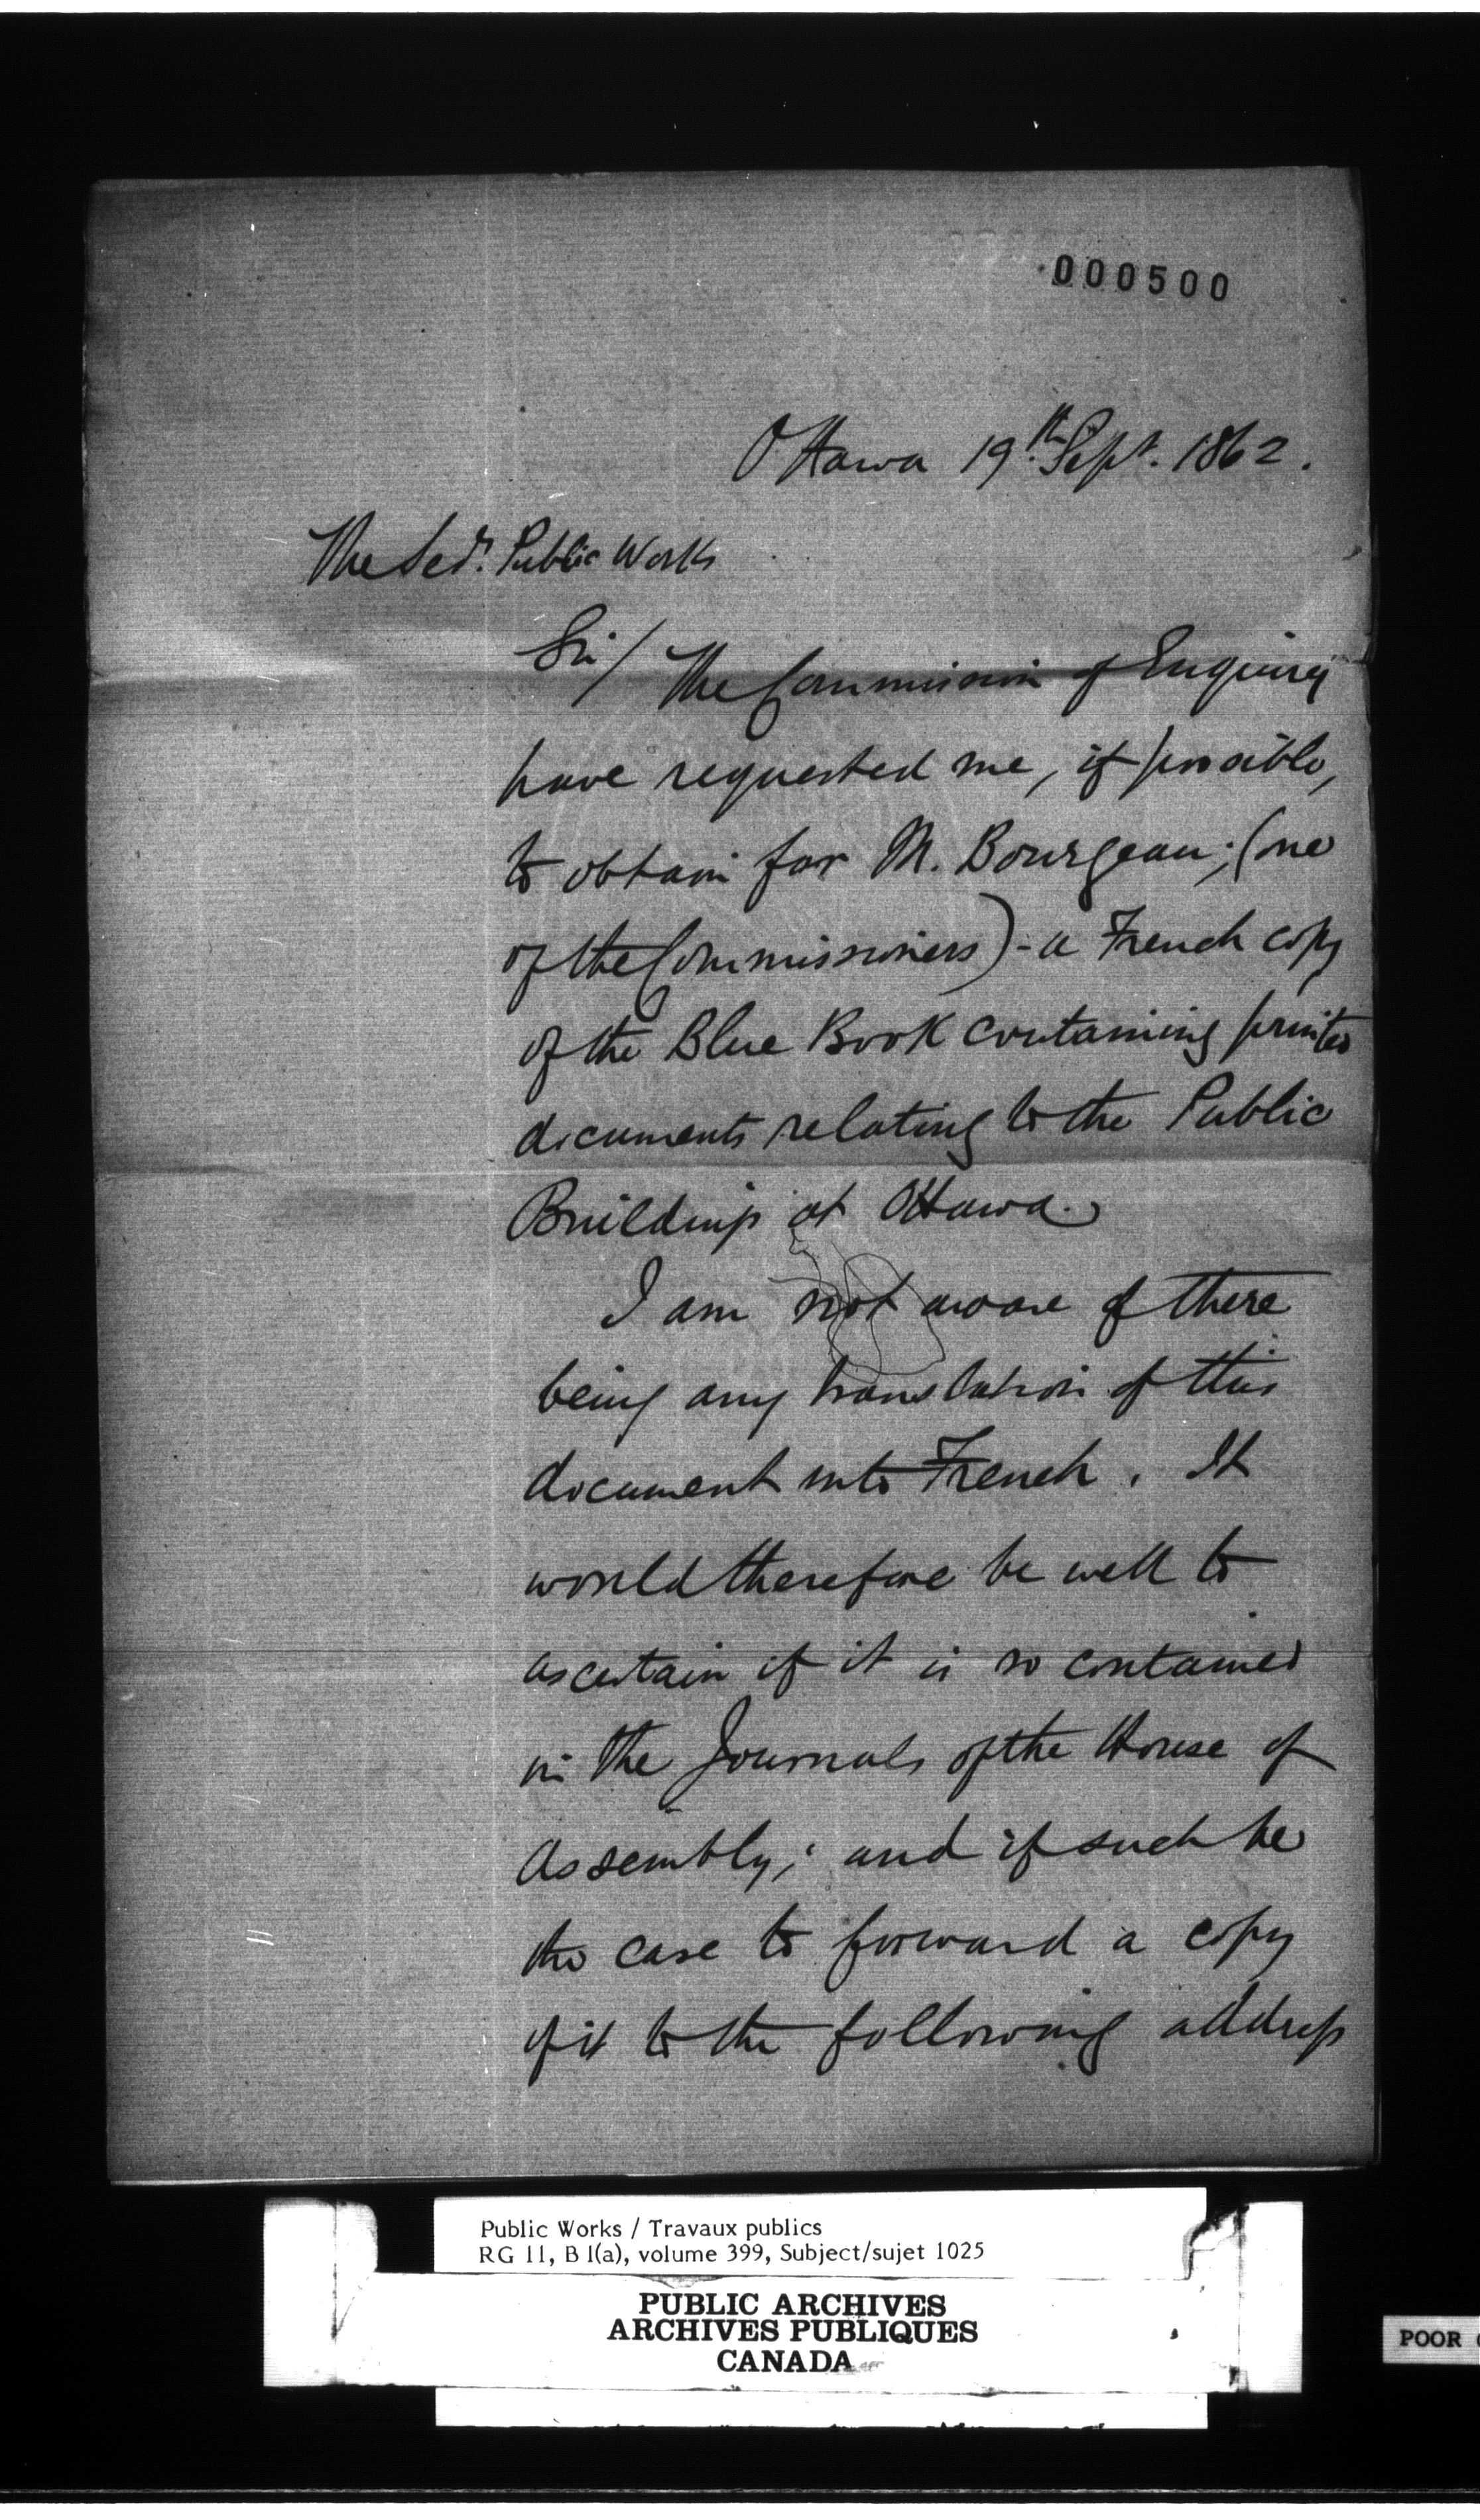 000500
Ottawa 19th Sept. 1862.
The Secy. Public Works
Sir/ The Commission of Enquiry
have requested me, if possible,
to obtain for M. Bourgeau; (one
of the Commissioners) - a French copy
of the Blue Book containing printed
documents relating to the Public
Buildings at Ottawa.
I am not aware of there
being any translation of this
document into French. It
would therefore be well to
ascertain if it is so contained
in the Journals of the House of
Assembly; and if such be
the case to forward a copy
of it to the following address
Public Works / Travaux publics
RG 11, B 1(a), volume 399, Subject/sujet 1025
PUBLIC ARCHIVES
ARCHIVES PUBLIQUES
CANADA
POOR